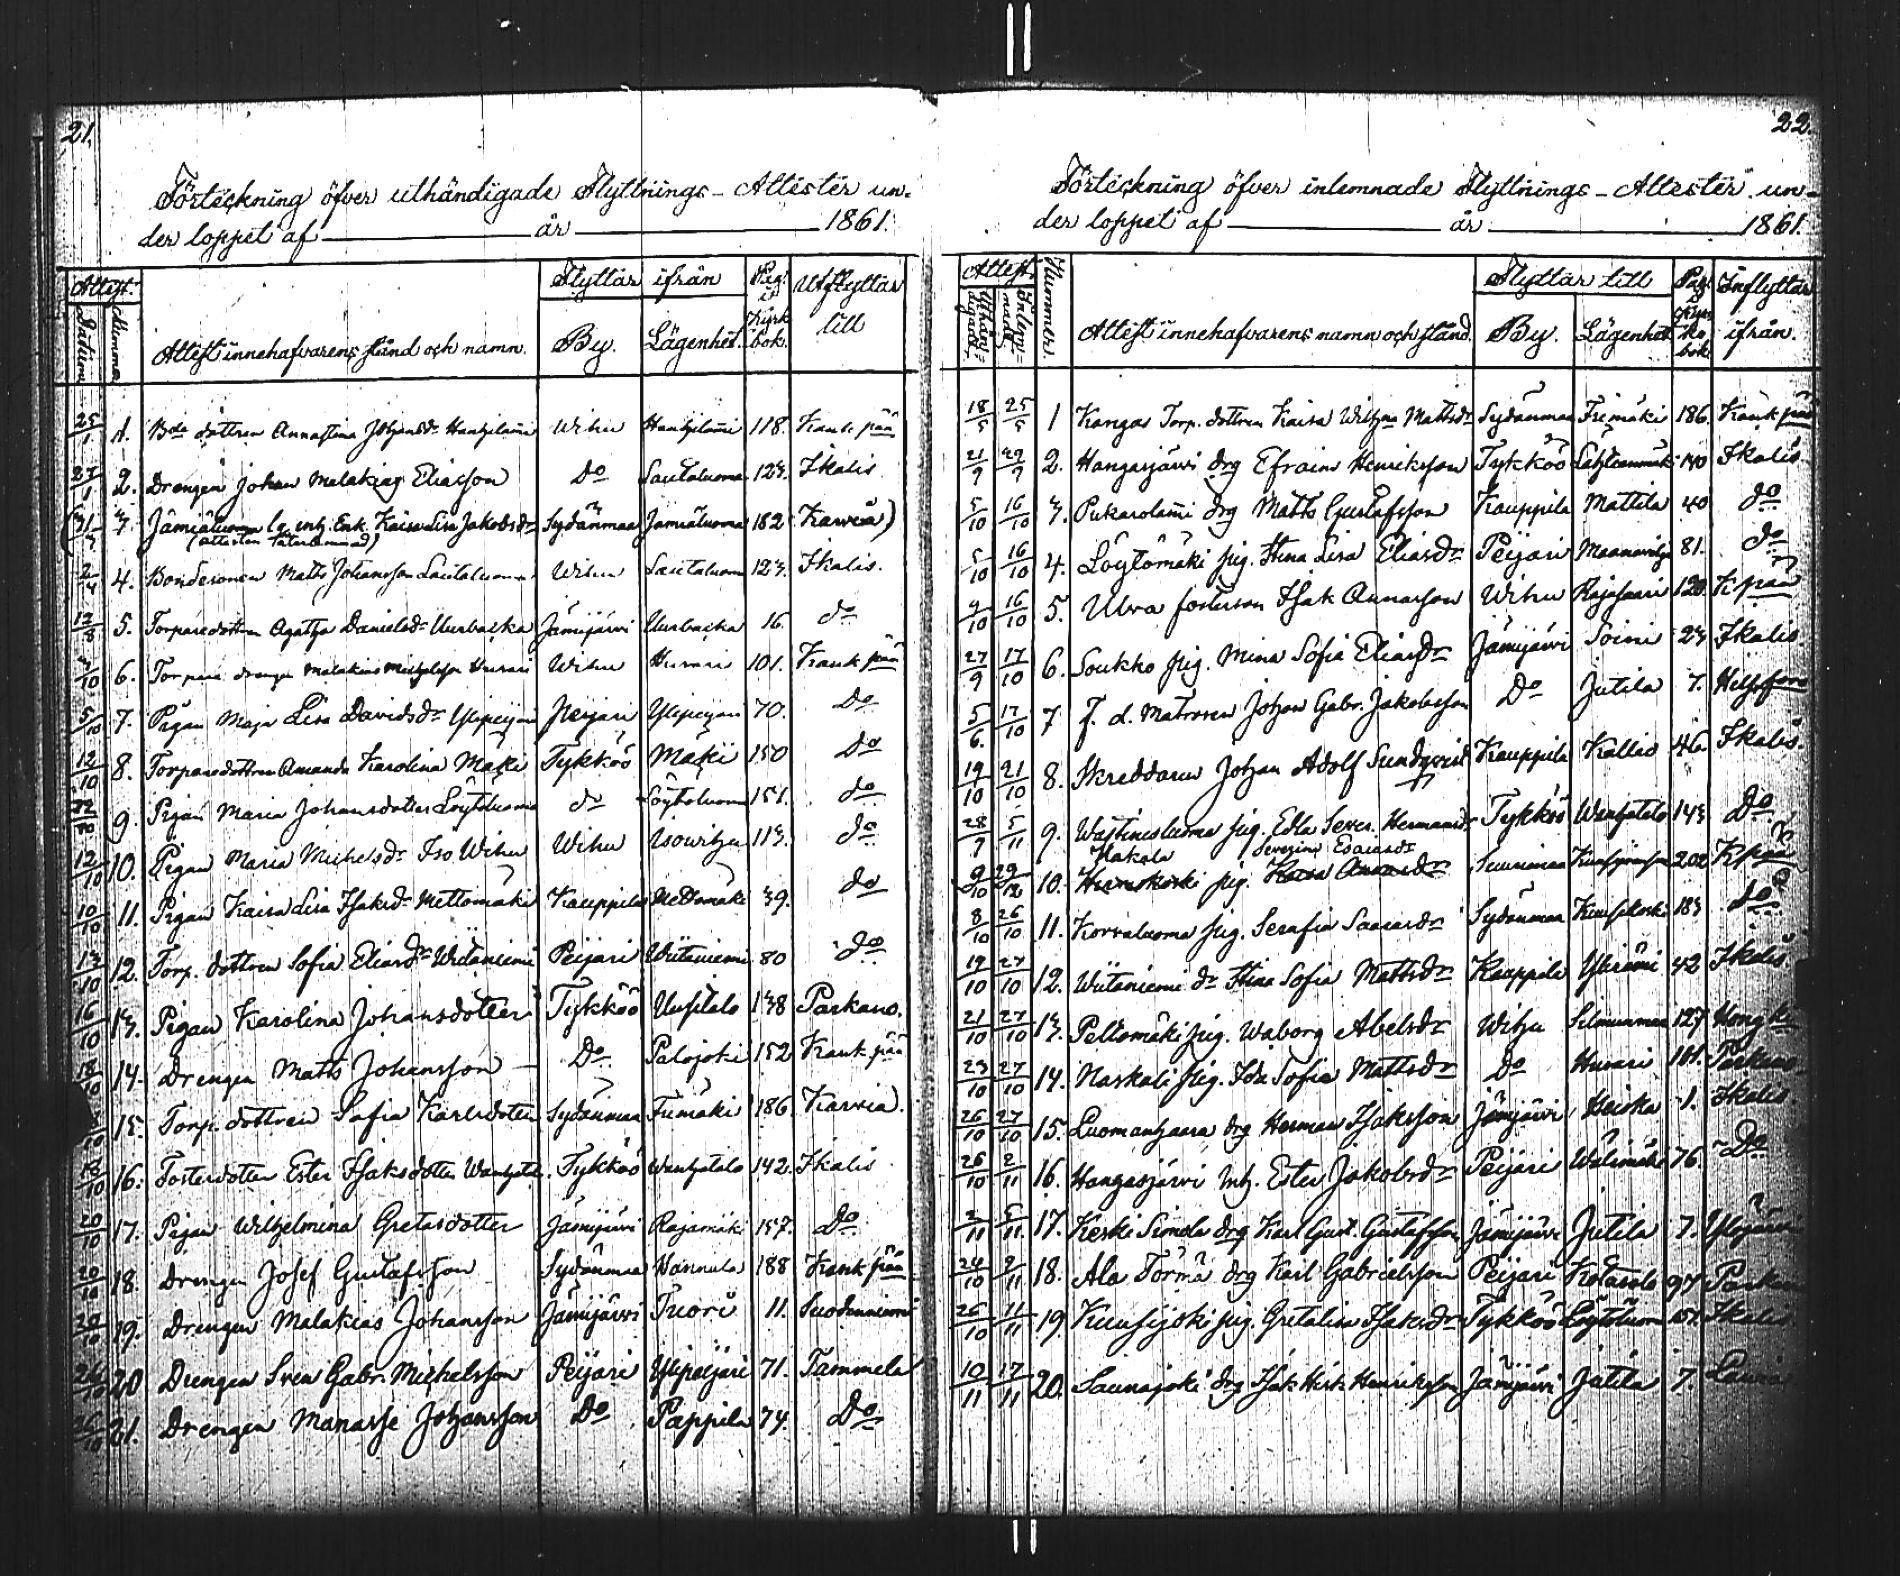 21.
Förteckning öfver uthändigade Flyttnings-Attester un-
der loppet af ______ år ______ 1861.
Attest.
Datum
Nummer
Attestinnehafvarens stånd och namn.
Flyttar ifrån
By.
Lägenhet.
Pag. i Kyrk bok.
Utflyttar till
25/1 1. Bde dottren Annastina Johansdr Hanhilami Wihu Hanhilami 118. Kank pää
27/1 2. Drengen Johan Malakias Eliasson Do Sautaluoma 123. Ikalis
(31/ 3 Jämiäluoma Enk. Kaisa Lisa Jakobsdr Sydänmaa Jämiäluoma 182 Karvia)
(attesten återlemnad)
2/4 4. Bondesonen Matts Johansson Lautaluoma Wihu Lautaluoma 123. Ikalis.
12/8 5. Torparedottren Agatha Danielsdr Uurbacka Jämijärvi Uurbacka 16. do
/10 6. Torpare drengen Malakias Michelsson Hurari Wihu Hurari 101. Kank pää
5/10 7. Pigan Maja Lisa Davidsdr Ylipeijari Peijari Ylipeijari 70. Do
12/10 8. Torparedottren Amanda Karolina Mäki Tykköö Mäki 150 Do
12/10 9. Pigan Maria Johansdotter Löytöluoma do Löytöluoma 151. do
12/10 10. Pigan Maria Michelsdr Iso Wihu Wihu Isowihu 113. do
10/10 11. Pigan Kaisa Lisa Isaksdr Mettomäki Kauppila Mettomäki 39. do
/10 12. Torp. dottren Sofia Eliasdr Wiitaniemi Peijari Wiitaniemi 80 do
16/10 13. Pigan Karolina Johansdotter Tykköö Uusitalo 138 Parkano.
18/10 14. Drengen Matts Johansson Do Palojoki 152 Kank pää
15. Torp. dottren Sofia Karlsdotter Sydänmaa Fimäki 186 Karvia.
18/10 16. Fosterdotter Ester Isaksdotter Wanhatalo Tykköö Wanhatalo 142. Ikalis
20/10 17. Pigan Wilhelmina Gretasdotter Jämijärvi Rajamäki 157. Do
20/10 18. Drengen Josef Gustafsson Sydänmaa Wannula 188 Kank pää
20/10 19. Drengen Malakias Johansson Jämijärvi Tuori 11. Suodenniemi
26/10 20 Drengen Sven Gabr. Michelsson Peijari Ylipeijari 71. Tammela
26/10 21. Drengen Manasse Johansson Do Pappila 74. Do
22.
Förteckning öfver inlemnade Flyttnings-Attester un-
der loppet af ______ år ______ 1861.
Attest
Uthändigadt
Inlemnadt
Nummer.
Attestinnehafvarens namn och stånd.
Flyttar till
By.
Lägenhet.
Pag. i Kyrko bok.
Inflyttar ifrån.
18/5 25/5 1 Kangas Torp. dottren Kaisa Wilhna Mattsdr Sydänmaa Fimäki 186. Kank pää
21/9 29/9 2. Hangasjärvi drg Efraim Henriksson Tykköö 140 Ikalis
5/10 16/10 3. Pukarolami drg Matts Gustafsson Kauppila Mattila 40 do
5/10 16/10 4. Löytömäki pig. Stina Lisa Eliasdr Peijari 81. do
9/10 16/10 5. Ulva fosterson Isak Annasson Wihu Rajasaari 120. K pää
27/9 17/10 6. Soukko pig. Mina Sofia Eliasdr Jämijärvi Soini 23 Ikalis.
5/6. 17/10 7 f. d. Matrosen Johan Gabr. Jakobsson Do Jutila 7. Helsfors
19/10 21/10 8. Skreddaren Johan Adolf Sundqvist Kauppila Kallio 46. Ikalis.
28/7 5/11 9. Wastinesluoma pig. Edla Sever. Hermansdr Tykköö Wanhatalo 143 Do
Hakola Severina Esaiasdr
9/10 29/12 10. pig. Kaisa 202 K pää
8/10 26/10 11. Korvaluoma pig. Serafia Saarasdr Sydänmaa 183 do
19/10 27/10 12. Wiitaniemi dr Stina Sofia Mattsdr Kauppila Yliräni 42 Ikalis.
21/10 27/10 13. Peltomäki pig. Waborg Abelsdr Wihu Silmunmaa 127 Hongki
23/10 27/10 14. Naskali pig. Ida Sofia Mattsdr Do Hurari 101. Parkano.
26/10 27/10 15. Luomanhaara drg Herman Isaksson Jämijärvi Heiska 1. Ikalis.
26/10 2/11 16. Hangasjärvi Inh. Ester Jakobsdr Peijari Wälimäki 76. Do
2/11 5/11 17. Keski Simola drg Karl Gust. Gustafsson Jämijärvi Jutila 7. Ylöjärvi
24/10 9/11 18. Ala Törmä drg Karl Gabrielsson Peijari Kotasalo 97 Parkano
26/10 11/11 19. Kuusijoki pig. Gretalisa Isaksdr Tykköö Löytöluoma 151. Ikalis.
10/11 17/11 20. Saunajoki drg Isak Hirk Henriksson Jämijärvi Jutila 7. Lavia